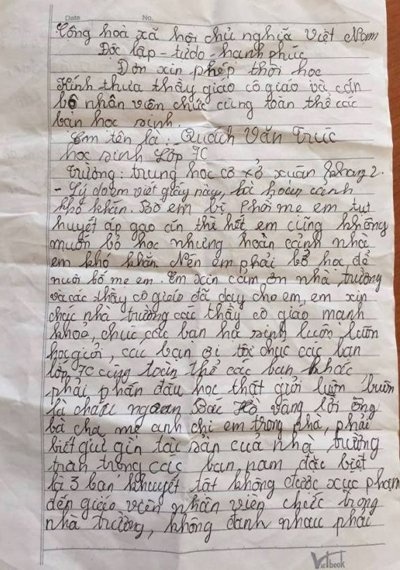 Date No.
Công hoà xã hội chủ nghĩa Việt Nam
Độc lập - tư do - hanh phúc
Đơn xin phép thôi học
Kính thưa thầy giáo cô giáo và cán
bộ nhân viên chức cùng toàn thể các
bạn học sinh.
Em tên là: Quách Văn Trúc
học sinh Lớp 7C
Trường: trung học cơ sở xuân phang 2.
- Lý do em viết giấy này, bà hoàn cảnh
khó khăn. Bố em bị Phổi mẹ em tụt
huyết áp gạo ăn thì hết em cũng không
muốn bỏ học nhưng hoàn cảnh nhà
em khó khăn Nên em phải bỏ học để
nuôi bố mẹ em. Em xin cảm ơn nhà trường
và các thầy cô giáo đã dạy cho em, em xin
chúc nhà trường các thầy cô giáo mạnh
khoẻ, chúc các bạn hà sinh luôn luôn
học giỏi, các bạn ơi tôi chúc các bạn
lớp 7C cùng toàn thể các bạn khác
phải phấn đấu học thật giỏi luôn luôn
là cháu ngoan Bác Hồ vâng lời ông
bà cha mẹ anh chị em trong nhà, phải
biết giữ gìn tài sản của nhà trường
trân trọng các bạn, nam đặc biệt
là 3 bạn khuyết tật không được xúc phạm
đến giáo viên nhân viên chức trong
nhà trường, không đánh nhau phải
Vietbook